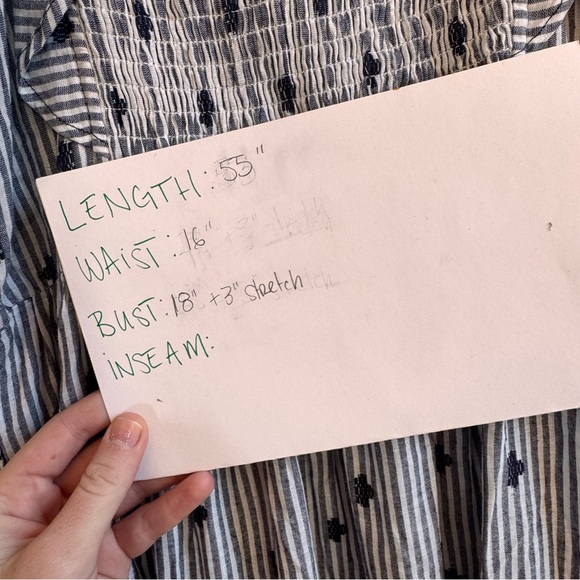 LENGTH: 55"
WAIST: 16"
BUST: 18" +3" stretch
INSEAM: